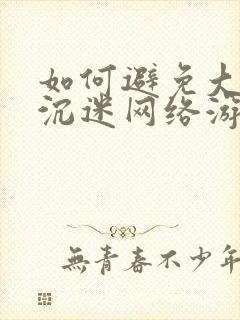 如何避免大
沉迷网络游
無青春不少年